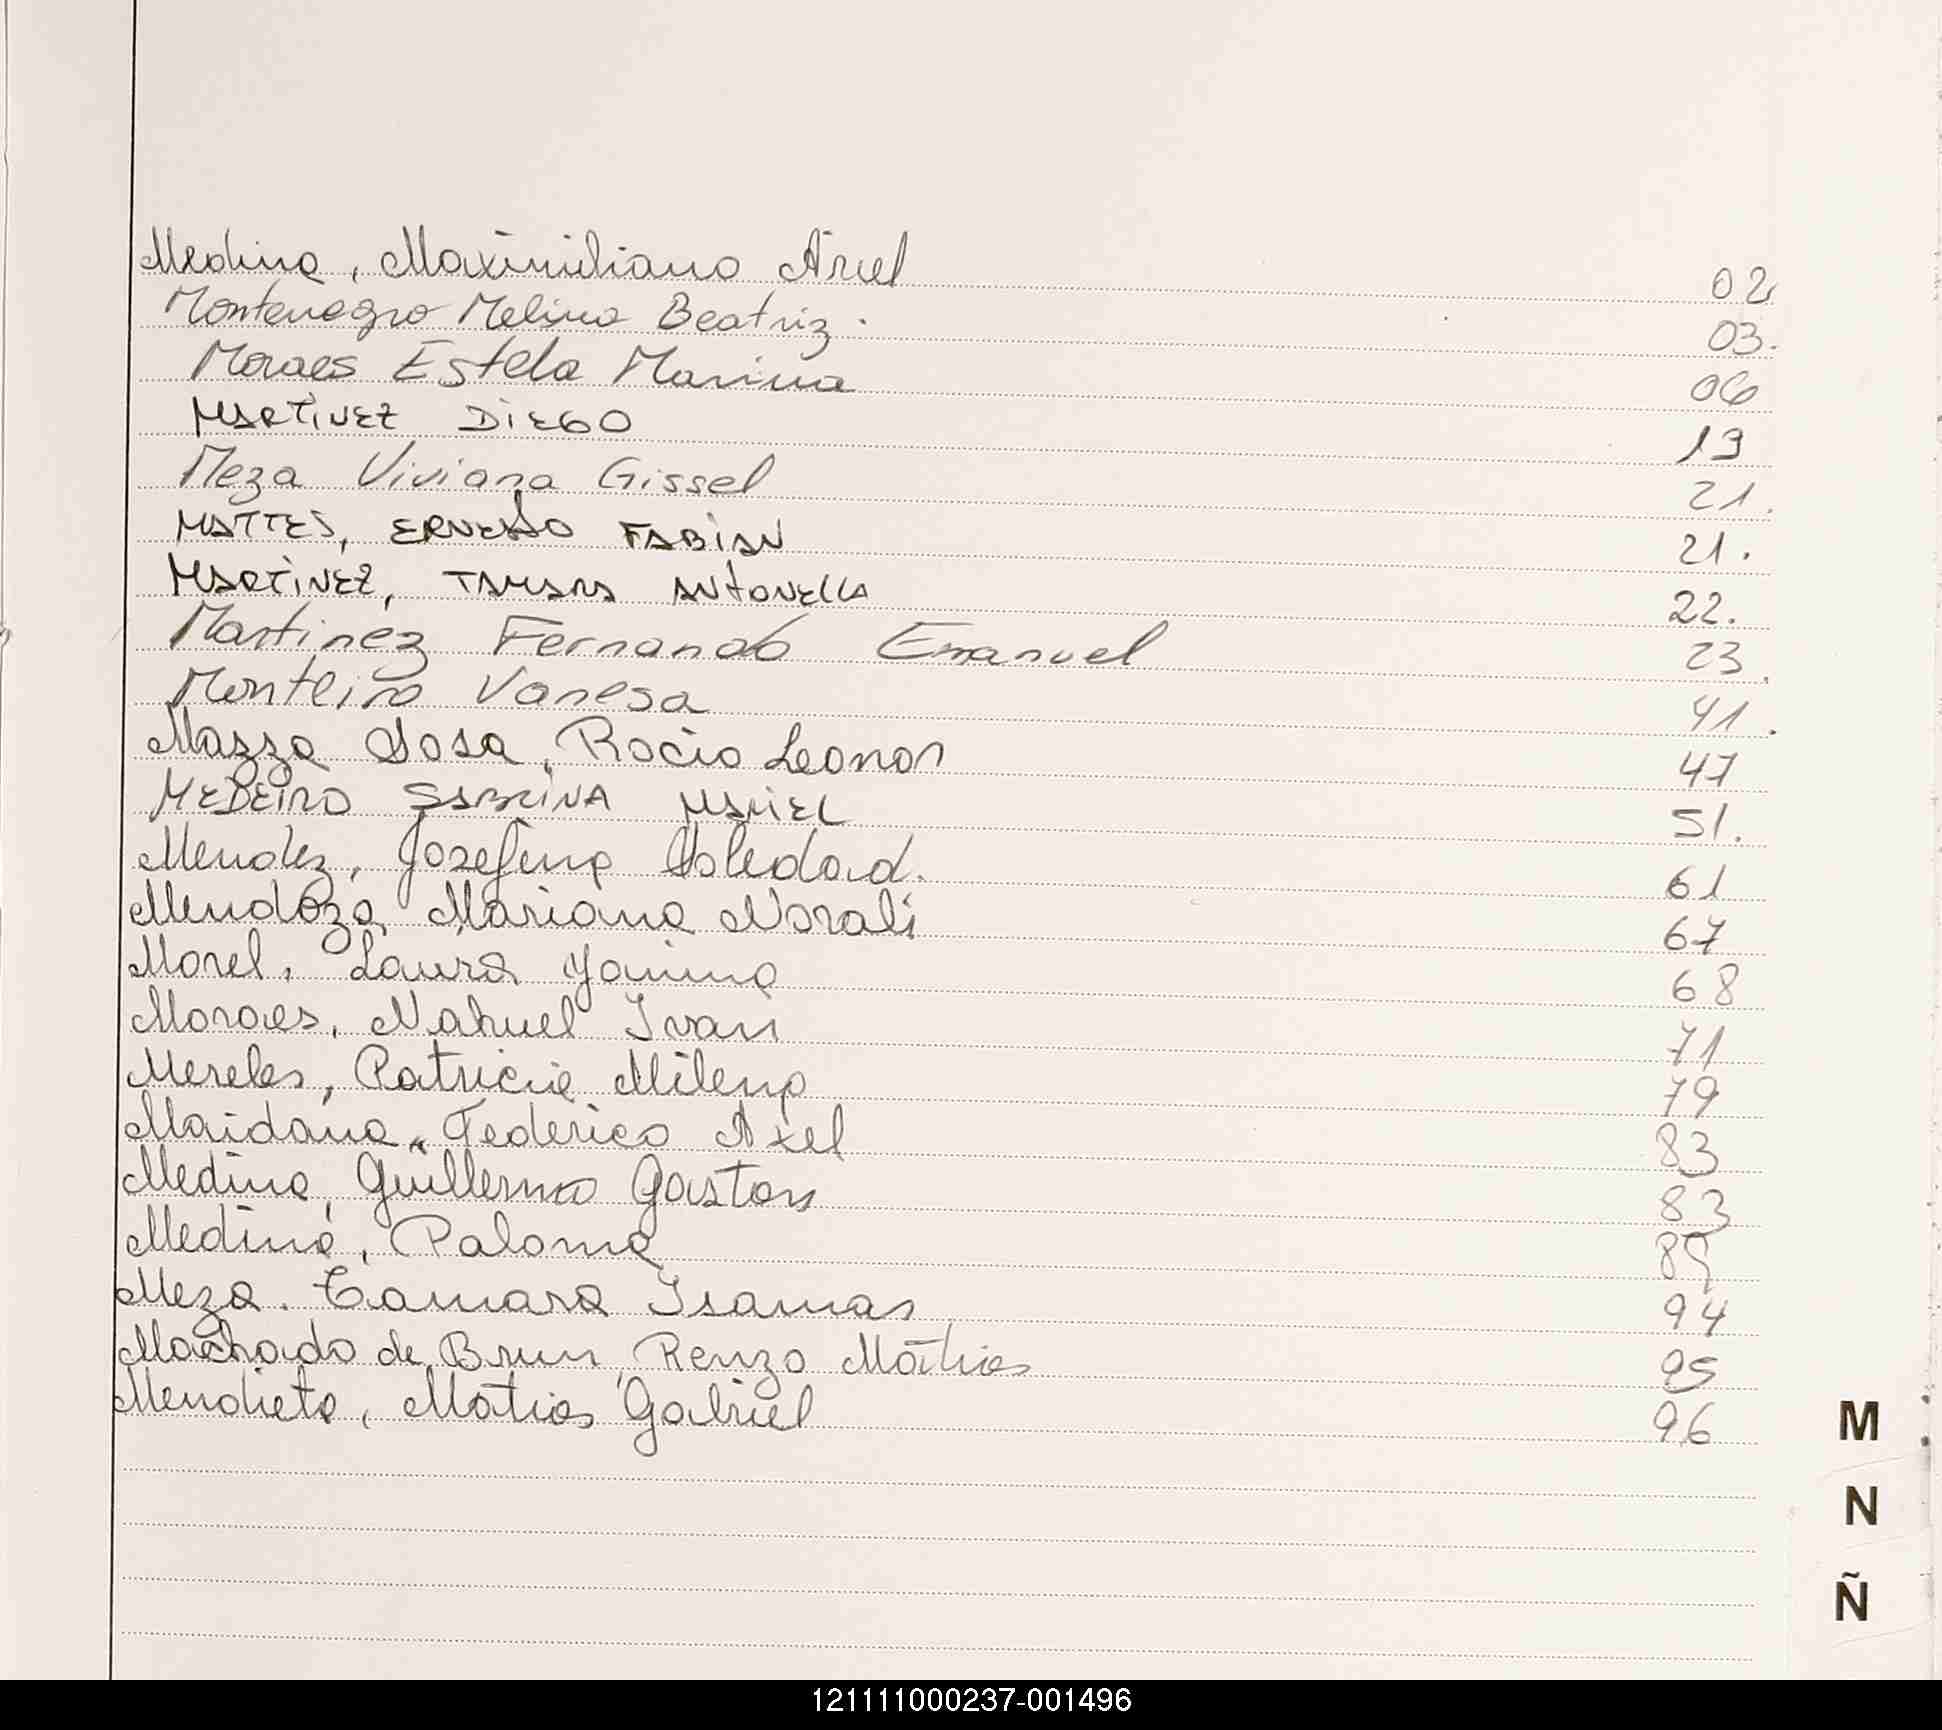 Medina, Maximiliano Ariel 02
Montenegro Melina Beatriz. 03.
Moraes Estela Marina 06
MARTINEZ DIEGO 19
Meza Viviana Gissel 21.
MATTES, ERNESTO FABIAN 21.
MARTINEZ, TAMARA ANTONELLA 22.
Martinez Fernando Emanuel 23.
Monteiro Vanesa 41.
Mazza Sosa, Rocio Leonor 47
MEDEIRO SABRINA MARIEL 51.
Mendez, Josefina Soledad. 61
Mendoza, Mariana Norali 67
Morel, Laura Yanina 68
Moraes, Nahuel Ivan 71
Mereles, Patricia Milena 79
Maidana, Federico Axel 83
Medina, Guillermo Gaston 83
Medina, Paloma 89
Meza. Tamara Isamar 94
Machado de Brun, Renzo Matias 95
Mendieta, Matias Gabriel 96
M
N
Ñ
121111000237-001496